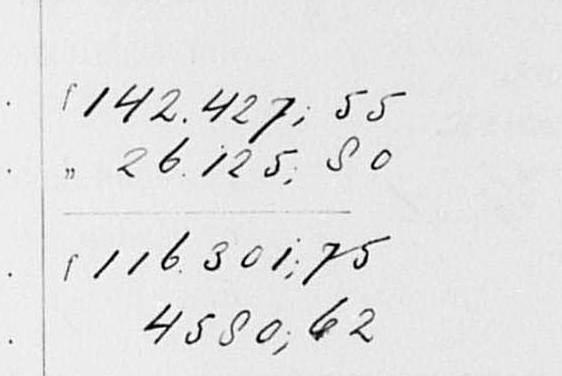 ƒ 142.427; 55
„ 26.125; 80
ƒ 116.301; 75
4580; 62